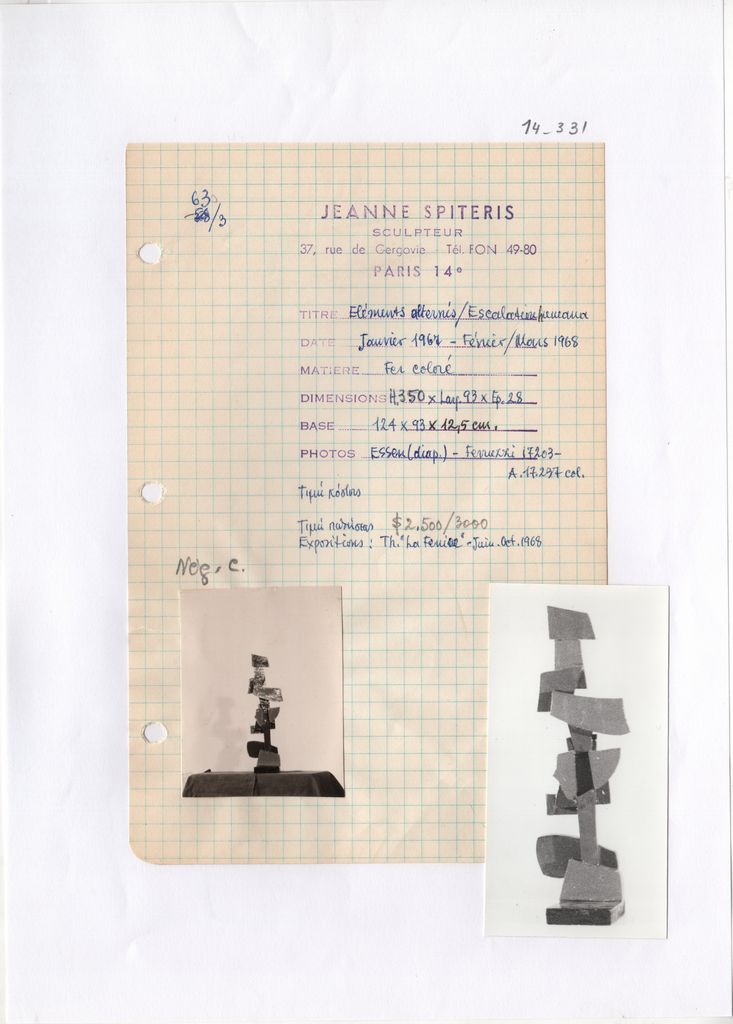 14_331
63
/3
JEANNE SPITERIS
SCULPTEUR
37, rue de Gergovie Tél. FON 49-80
PARIS 14°
TITRE Eléments alternés/Escalation
DATE Janvier 1967 - Février/Mars 1968
MATIERE Fer coloré
DIMENSIONS H.350 x Larg. 93 x Ep. 28
BASE 124 x 93 x 12,5 cm.
PHOTOS Essen (diap.) - Ferruzzi 17203-
A.17.297 col.
Τιμή κόστους
Τιμή $2.500/3000
Expositions : Th. "La Fenice" - Juin. Oct. 1968
Nég. C.